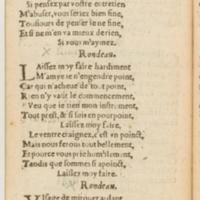 Si pensez par vostre entretien
M'abuser, vous seriez bien fine,
Tousiours de penser le ne fine,
Et si ne m'en va mieux de rien,
Si vous m'aymez.
Rondeau.
Laissez moy faire hardiment
M'amye ie n'engendre point,
Car qui n'achecut de tout point,
Rien n'y vault le commencement.
Veu que ie tien mon instrument,
Tout prest, & si fois en pourpoint,
Laissez moy faire.
Le ventre craignez, c'est vn poinct,
Mais nous ferons tout bellement,
Et pource vous prie humblement,
Tandis que sommes si apoint,
Laissez moy faire.
Rondeau.